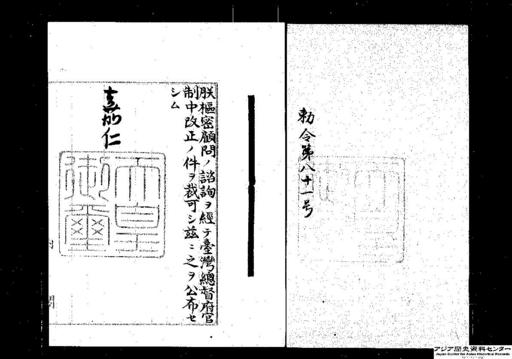 勅令第八十一号
朕樞密顧問ノ諮詢ヲ經テ臺灣總督府官
制中改正ノ件ヲ裁可シ茲ニ之ヲ公布セ
シム
嘉仁
天皇
御璽
アジア歴史資料センター
Japan Center for Asian Historical Records